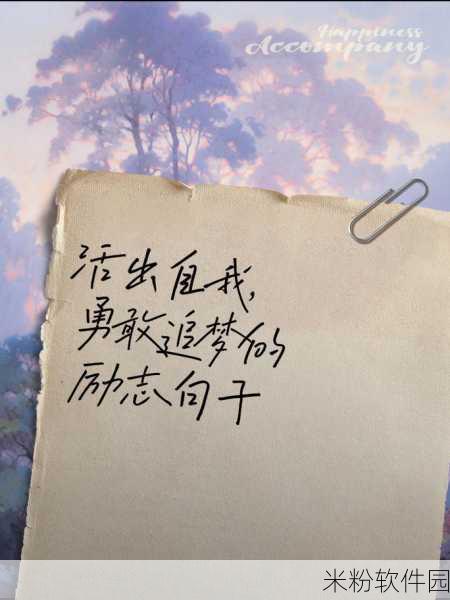 Happiness
Accompany
活出自我,
勇敢追梦的
励志句子
米粉软件园